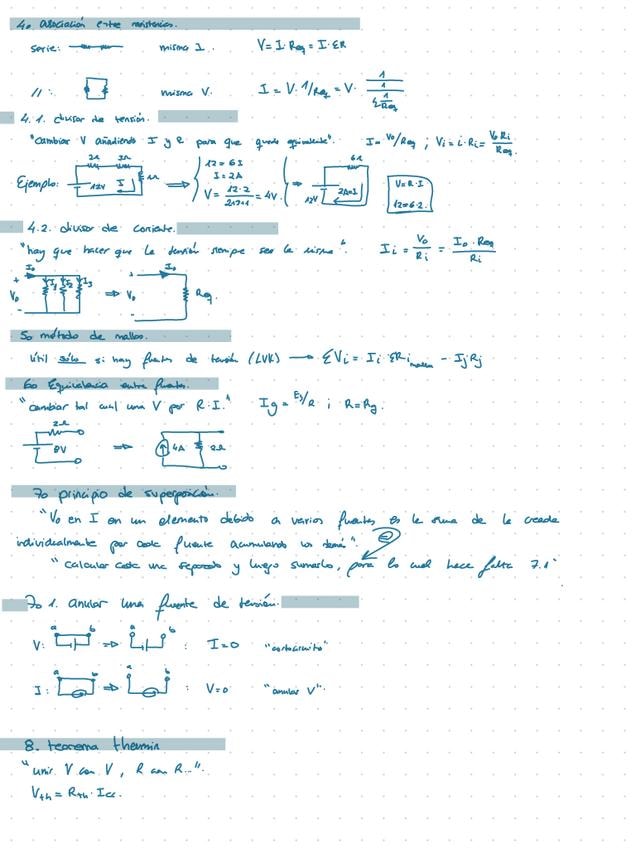 4o asociación entre resistencias.
serie: misma I. V = I·Req = I·ΣR
// : misma V. I = V·1/Req = V· 1/(1/Σ 1/Req)
4.1. divisor de tensión.
"cambiar V añadiendo I y R para que quede equivalente". I = Vo/Req ; Vi = i·Ri = Vo Ri/Req.
Ejemplo: 2Ω 3Ω 1Ω 12V I ⇒ 12 = 6I ⇒ 6Ω 12V 2A=I V=R·I
I = 2A
V = 12·2/2+3+1 = 4V. 12=6·2.
4.2. divisor de corriente.
"hay que hacer que la tensión siempre sea la misma". Ii = Vo/Ri = Io·Req/Ri
+ Vo - Io I1 I2 I3 ⇒ + Vo - Io Req.
5o método de mallas.
útil sólo si hay fuentes de tensión (LVK) → ΣVi = Ii ΣRi malla - IjRj
6o Equivalencia entre fuentes.
"cambiar tal cual una V por R·I." Ig = Es/R ; R=Rg.
2Ω 8V ⇒ 4A 2Ω
7o principio de superposición.
"Vo en I en un elemento debido a varias fuentes es la suma de la creada
individualmente por cada fuente acumulando las demás".
"calcular cada una separado y luego sumarlo, para lo cual hace falta 7.1"
7o 1. anular una fuente de tensión.
V: a b ⇒ a b : I=0 "cortocircuito"
I: a b ⇒ a b : V=0 "anular V".
8. teorema thevnin
"unir V con V, R con R...".
Vth = Rth·Icc.